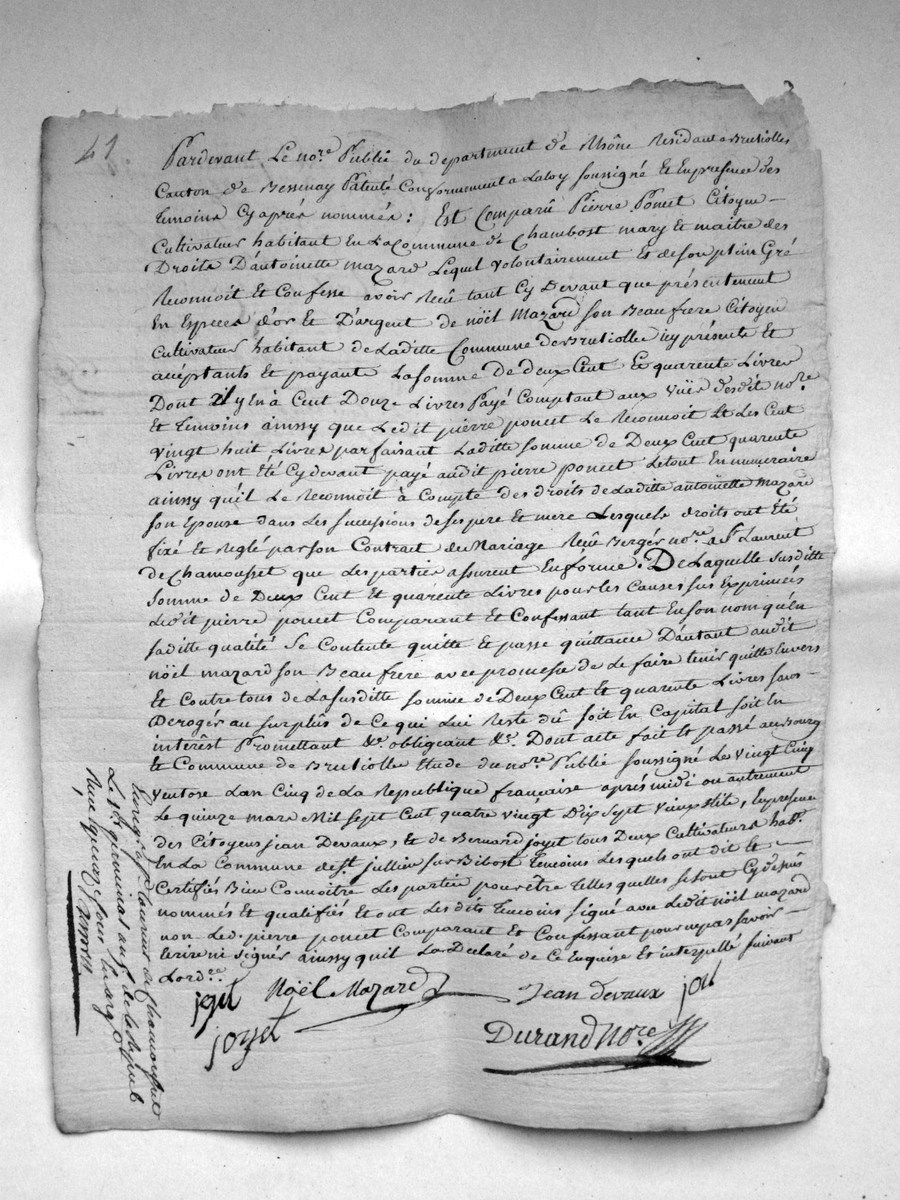 41
Pardevant Le no.re Publié du departement de Rhône Residant a Brusiolles
Canton de Bessenay Patenté Conformement a Laloy soussigné Et Enpresence des
temoins Cy après nommés : Est Comparû Pierre Poncet Citoyen
Cultivateur habitant En La Commune de Chambost mary et maitre des
Droits D'antoinette mazard Lequel volontairement Et deson plein Gré
Reconnoit Et Confesse avoir Reçû tant Cy Devant que présentement
En Especes d'or Et D'argent de nöël Mazard son Beaufrere Citoyen
Cultivateur habitant de Laditte Commune de Brusiolle icy présente Et
acceptants Et payants La somme De deux Cent Et quarente Livres
Dont il yEn à Cent Douze Livres Payé Comptant aux vuës desdit no.re
Et temoins ainssy que Ledit pierre poncet Le Reconnoit Et Les Cent
vingt huit Livres parfaisant Laditte somme de Deux Cent quarente
Livres ont été Cy devant payé audit pierre poncet Letout En numeraire
ainssy qu'il Le Reconnoit à Compte des droits de Laditte antoinette mazard
son Epouse dans Les successions deses pere Et mere Lesquels droits ont été
fixé Et Reglé par son Contract de Mariage Reçû Berger no.re a St Laurent
de Chamousset que Les parties assurent En forme. De Laquelle susditte
somme de Deux Cent Et quarente Livres pour les Causes sus Exprimées
Ledit pierre poncet Comparant Et Confessant tant En son nom qu'en
saditte qualité Se Contente quitte Et passe quittance D'autant audit
nöël mazard son Beau frere avec promesse de Le faire tenir quitte Envers
Et Contre tous de La susditte somme de Deux Cent Et quarente Livres sans
Deroger au surplus de Ce qui Lui Reste dû soit En Capital soit En
interêst Promettant &.a obligeant &.a Dont acte fait Et passé au Bourg
Et Commune de Brusiolle Etude du no.re Publié soussigné Le vingt Cinq
ventose Lan Cinq de La Republique française après midi ou autrement
Le quinze mars Mil sept Cent quatre vingt Dix Sept vieux stile, En presence
des Citoyens jean Devaux, Et de Bernard joyet tous Deux Cultivateurs hab.t
En La Commune de St jullien sur Bibost temoins Lesquels ont dit et
Certifiés Bien Connoître Les parties pour être telles quelles se sont Cy dessus
nommés Et qualifiés Et ont Les dits temoins signé avec Ledit nöël mazard
non Led. pierre poncet Comparant Et Confessant pour ne pas savoir
Ecrire ni signer ainssy quil La Declaré de Ce Enquise Et interpellé suivant
Lord.ce
joyet Nöël Mazard Jean devaux
joyet Durand No.re
Enreg. a St Laurent de Chamousset
Le germinal an 5 de la Repub